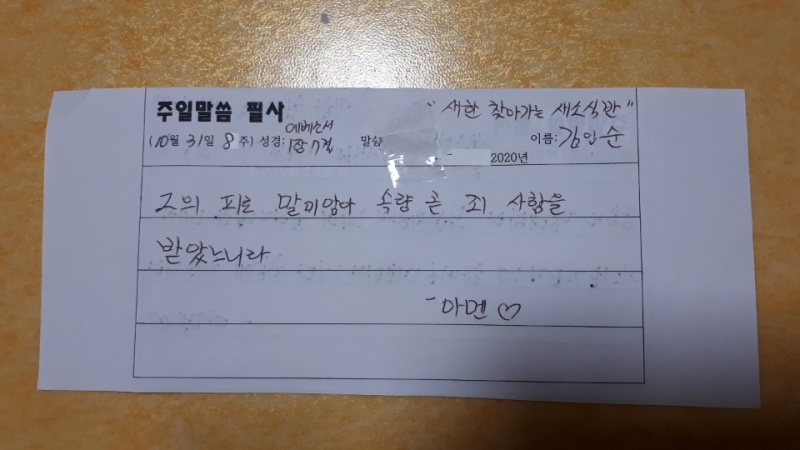 주일말씀 필사 " 새한 찾아가는 새소식반 "
에베소서
(10월 31일 8주) 성경: 1장 7절 말씀 이름: 김인순
- 2020년
그의 피로 말미암아 속량 곧 죄 사함을
받았느니라
- 아멘 ♡